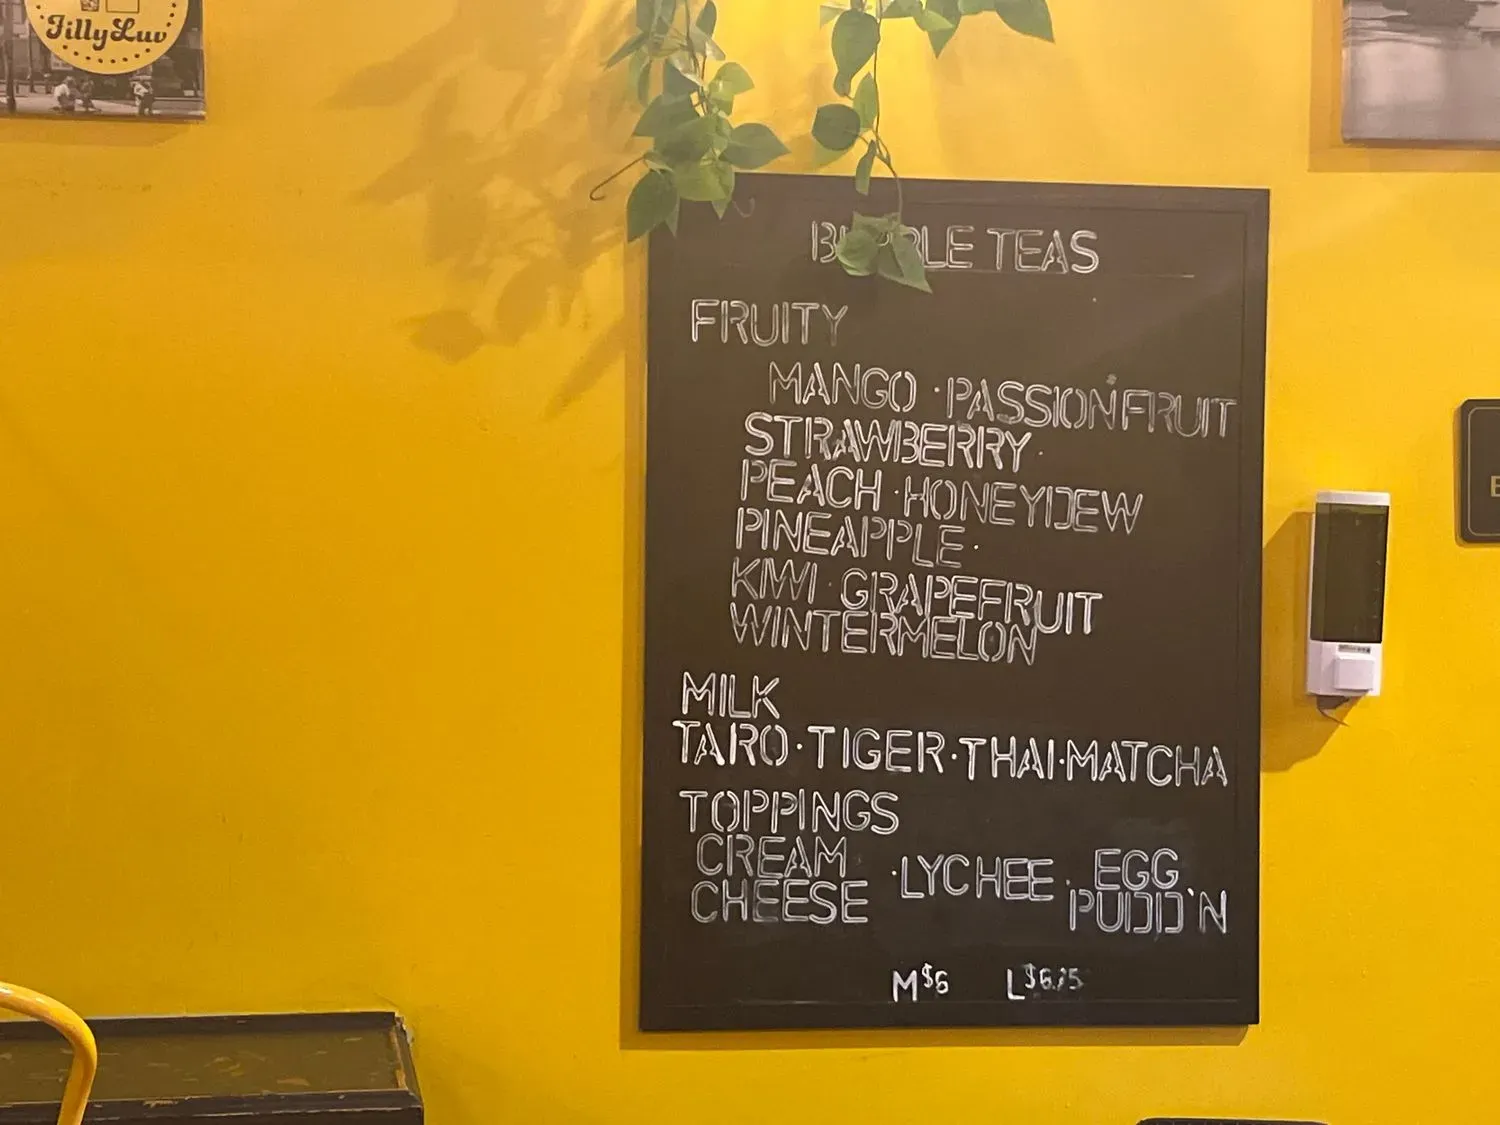 JillyLuv
BUBBLE TEAS
FRUITY
MANGO · PASSIONFRUIT
STRAWBERRY ·
PEACH · HONEYDEW
PINEAPPLE ·
KIWI · GRAPEFRUIT
WINTERMELON
MILK
TARO · TIGER · THAI · MATCHA
TOPPINGS
CREAM CHEESE · LYCHEE · EGG PUDD'N
M $6 L $6.75